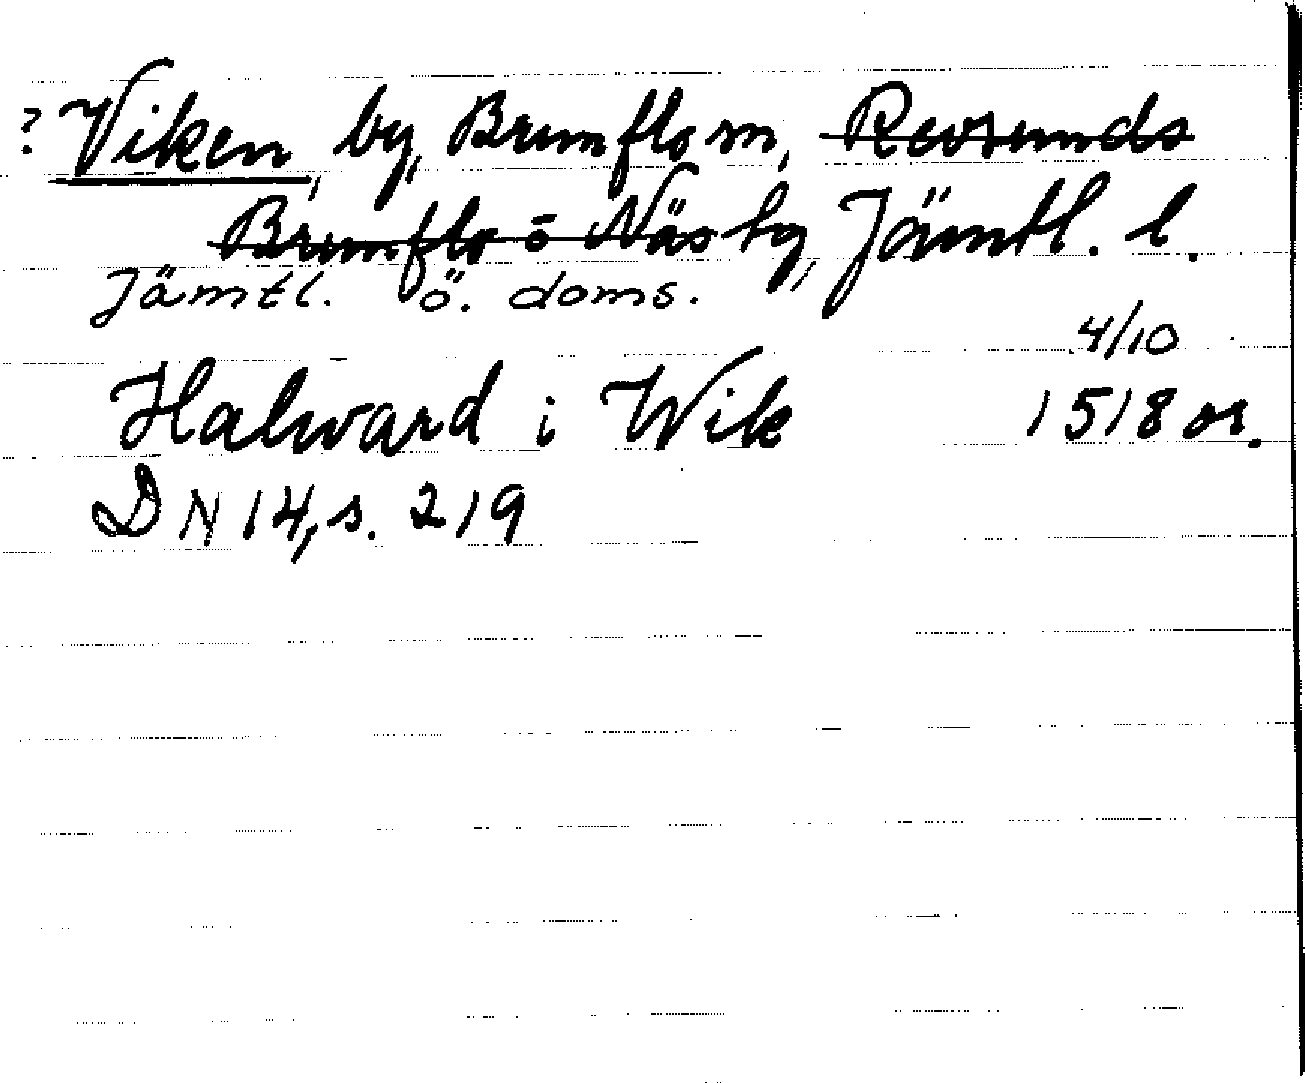 ? Viken, by, Brunflo sn, Revsunds
Brunflo o Näs tg, Jämtl. l.
Jämtl. ö. doms.
4/10
Halward i Wik 1518 or.
DN 14, s. 219